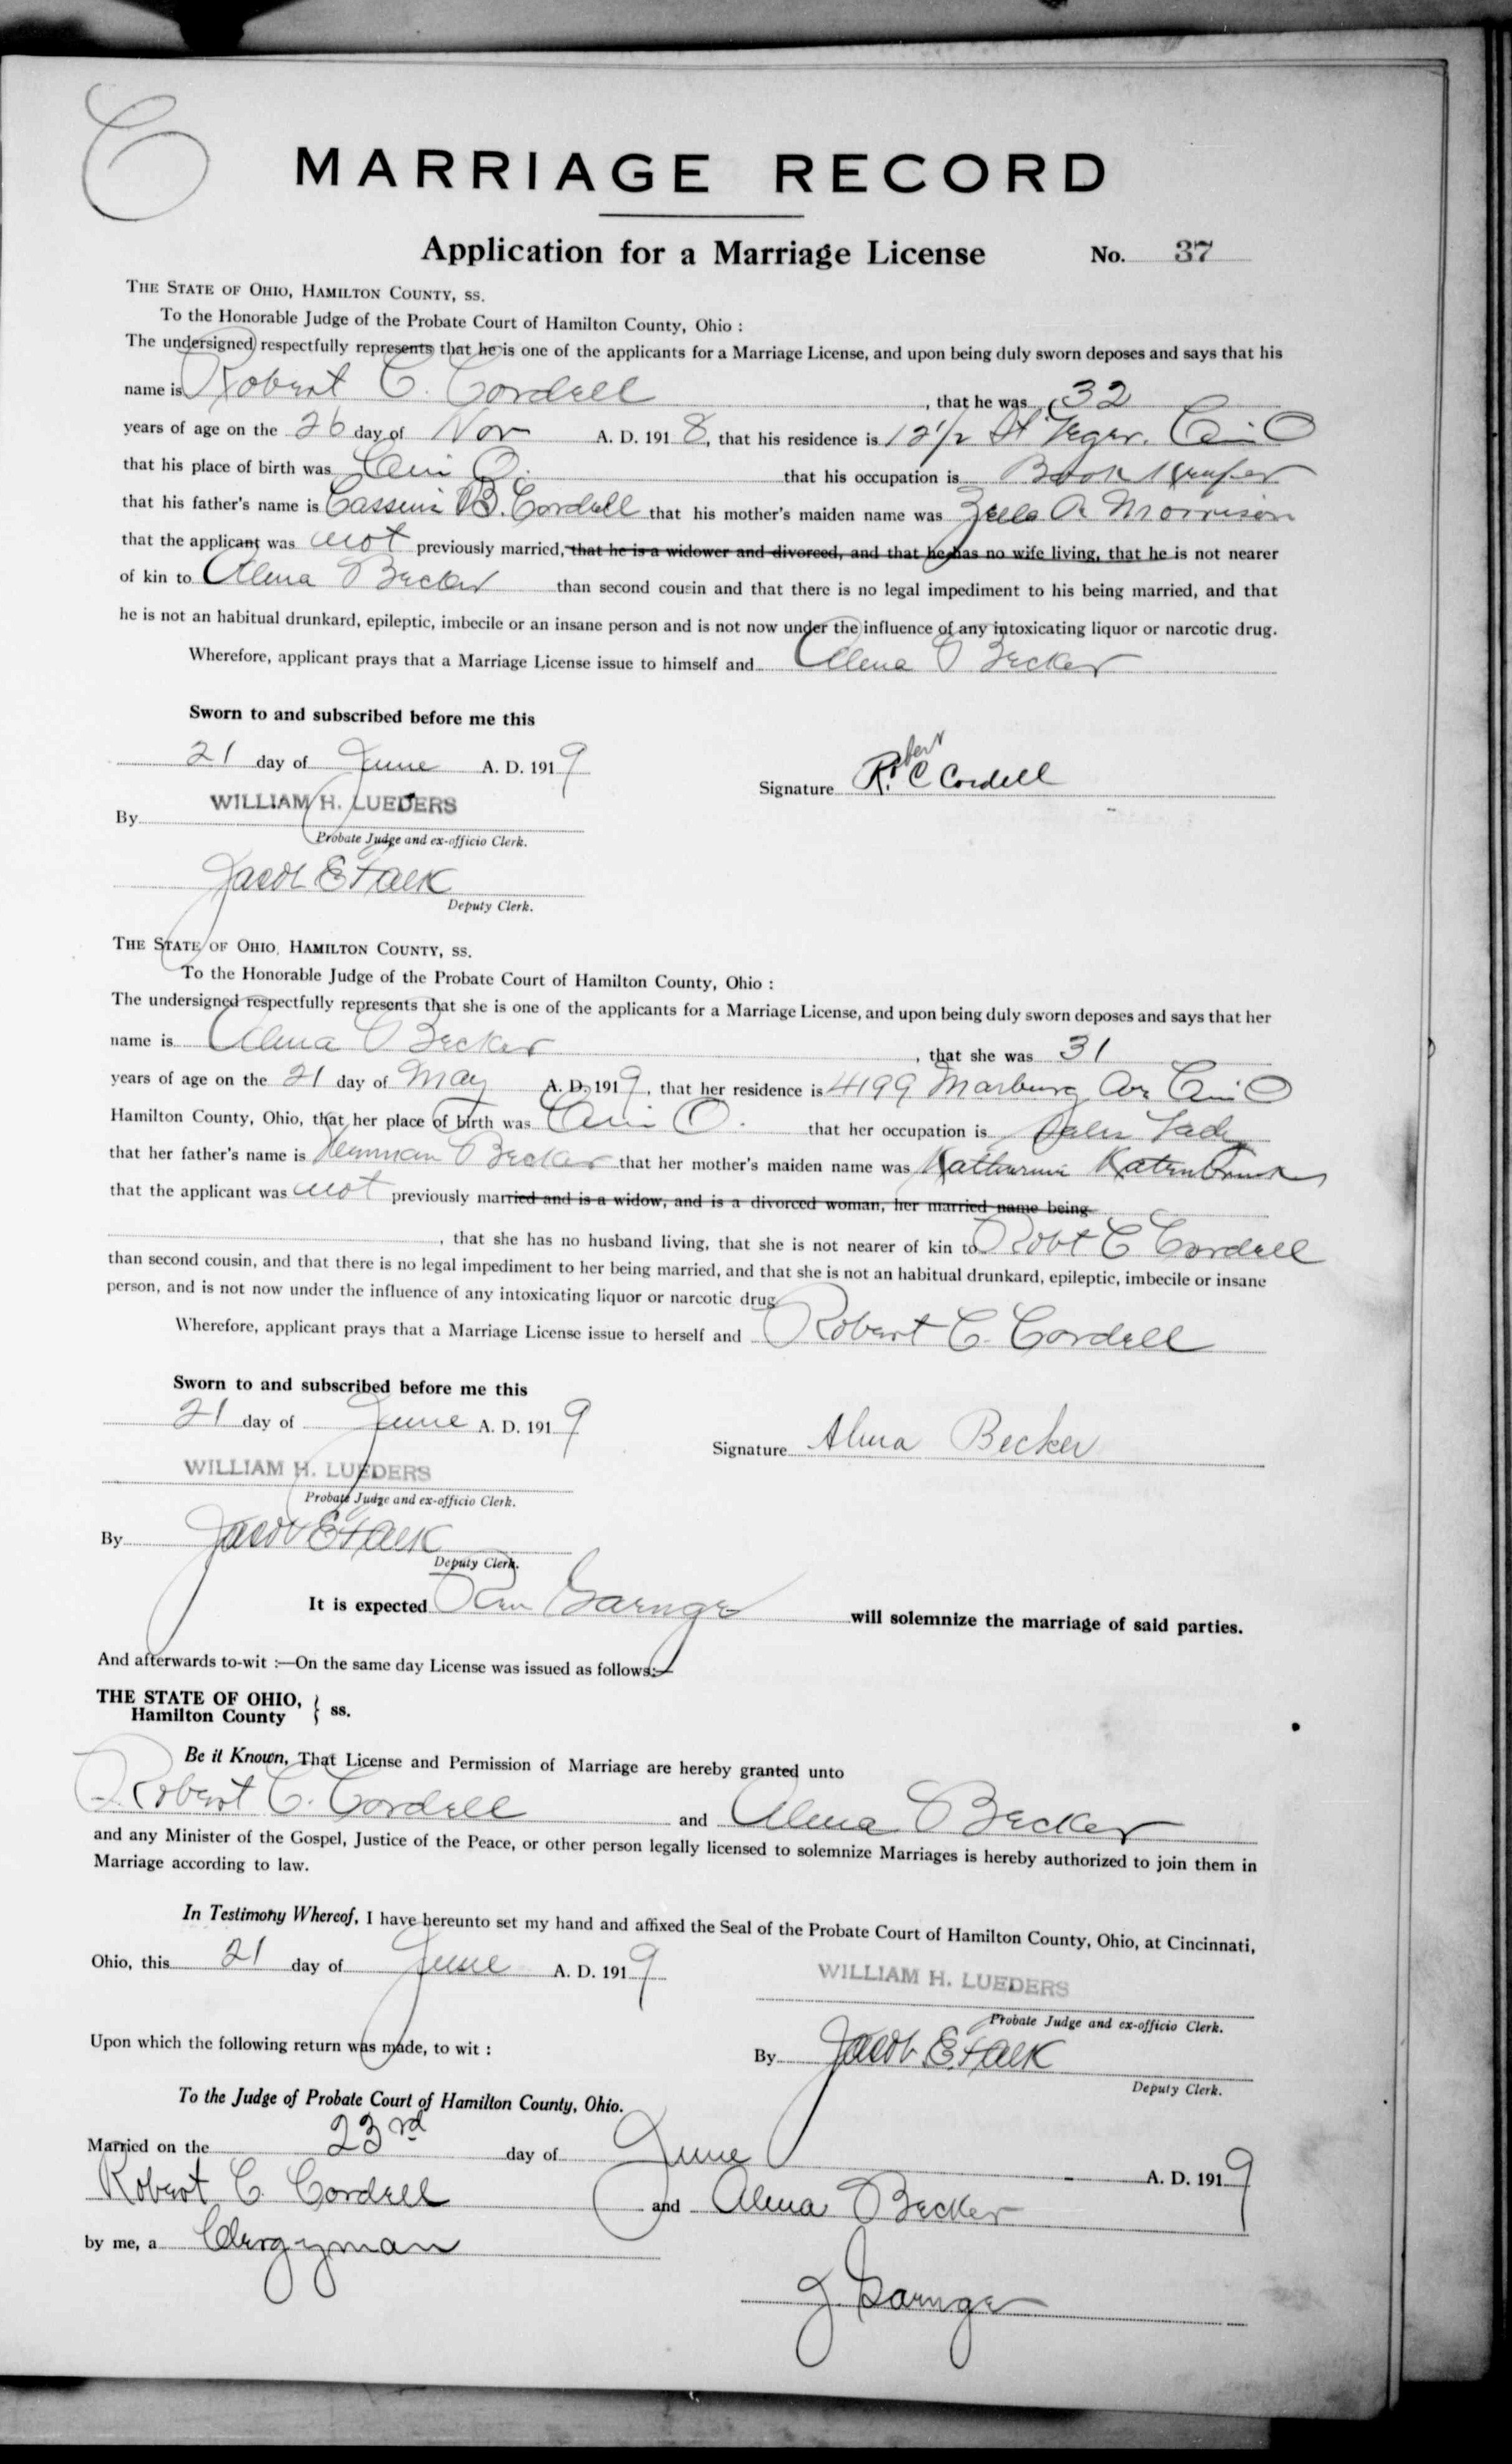 C
MARRIAGE RECORD
Application for a Marriage License No. 37
THE STATE OF OHIO, HAMILTON COUNTY, SS.
To the Honorable Judge of the Probate Court of Hamilton County, Ohio :
The undersigned respectfully represents that he is one of the applicants for a Marriage License, and upon being duly sworn deposes and says that his
name is Robert C. Cordell , that he was 32
years of age on the 26 day of Nov A. D. 191 8, that his residence is 12 1/2 St Cin O
that his place of birth was Cin O. that his occupation is Book Keeper
that his father's name is B. Cordell that his mother's maiden name was A Morrison
that the applicant was not previously married, that he is a widower and divorced, and that he has no wife living, that he is not nearer
of kin to Alma Becker than second cousin and that there is no legal impediment to his being married, and that
he is not an habitual drunkard, epileptic, imbecile or an insane person and is not now under the influence of any intoxicating liquor or narcotic drug.
Wherefore, applicant prays that a Marriage License issue to himself and Alma Becker
Sworn to and subscribed before me this
21 day of June A. D. 191 9
Signature Robert C Cordell
WILLIAM H. LUEDERS
By
Probate Judge and ex-officio Clerk.
Jacob E Falk
Deputy Clerk.
THE STATE OF OHIO, HAMILTON COUNTY, SS.
To the Honorable Judge of the Probate Court of Hamilton County, Ohio :
The undersigned respectfully represents that she is one of the applicants for a Marriage License, and upon being duly sworn deposes and says that her
name is Alma Becker , that she was 31
years of age on the 21 day of May A. D. 191 9, that her residence is 4199 Marburg Ave Cin O
Hamilton County, Ohio, that her place of birth was Cin O. that her occupation is Sales Lady
that her father's name is Herman Becker that her mother's maiden name was Katharine
that the applicant was not previously married and is a widow, and is a divorced woman, her married name being
, that she has no husband living, that she is not nearer of kin to Robt C Cordell
than second cousin, and that there is no legal impediment to her being married, and that she is not an habitual drunkard, epileptic, imbecile or insane
person, and is not now under the influence of any intoxicating liquor or narcotic drug
Wherefore, applicant prays that a Marriage License issue to herself and Robert C. Cordell
Sworn to and subscribed before me this
21 day of June A. D. 191 9
Signature Alma Becker
WILLIAM H. LUEDERS
Probate Judge and ex-officio Clerk.
By Jacob E Falk
Deputy Clerk.
It is expected Rev will solemnize the marriage of said parties.
And afterwards to-wit :—On the same day License was issued as follows:—
THE STATE OF OHIO,
Hamilton County } ss.
Be it Known, That License and Permission of Marriage are hereby granted unto
Robert C. Cordell and Alma Becker
and any Minister of the Gospel, Justice of the Peace, or other person legally licensed to solemnize Marriages is hereby authorized to join them in
Marriage according to law.
In Testimony Whereof, I have hereunto set my hand and affixed the Seal of the Probate Court of Hamilton County, Ohio, at Cincinnati,
Ohio, this 21 day of June A. D. 191 9
WILLIAM H. LUEDERS
Probate Judge and ex-officio Clerk.
Upon which the following return was made, to wit :
By Jacob E Falk
Deputy Clerk.
To the Judge of Probate Court of Hamilton County, Ohio.
Married on the 23rd day of June A. D. 191 9
Robert C. Cordell and Alma Becker
by me, a Clergyman